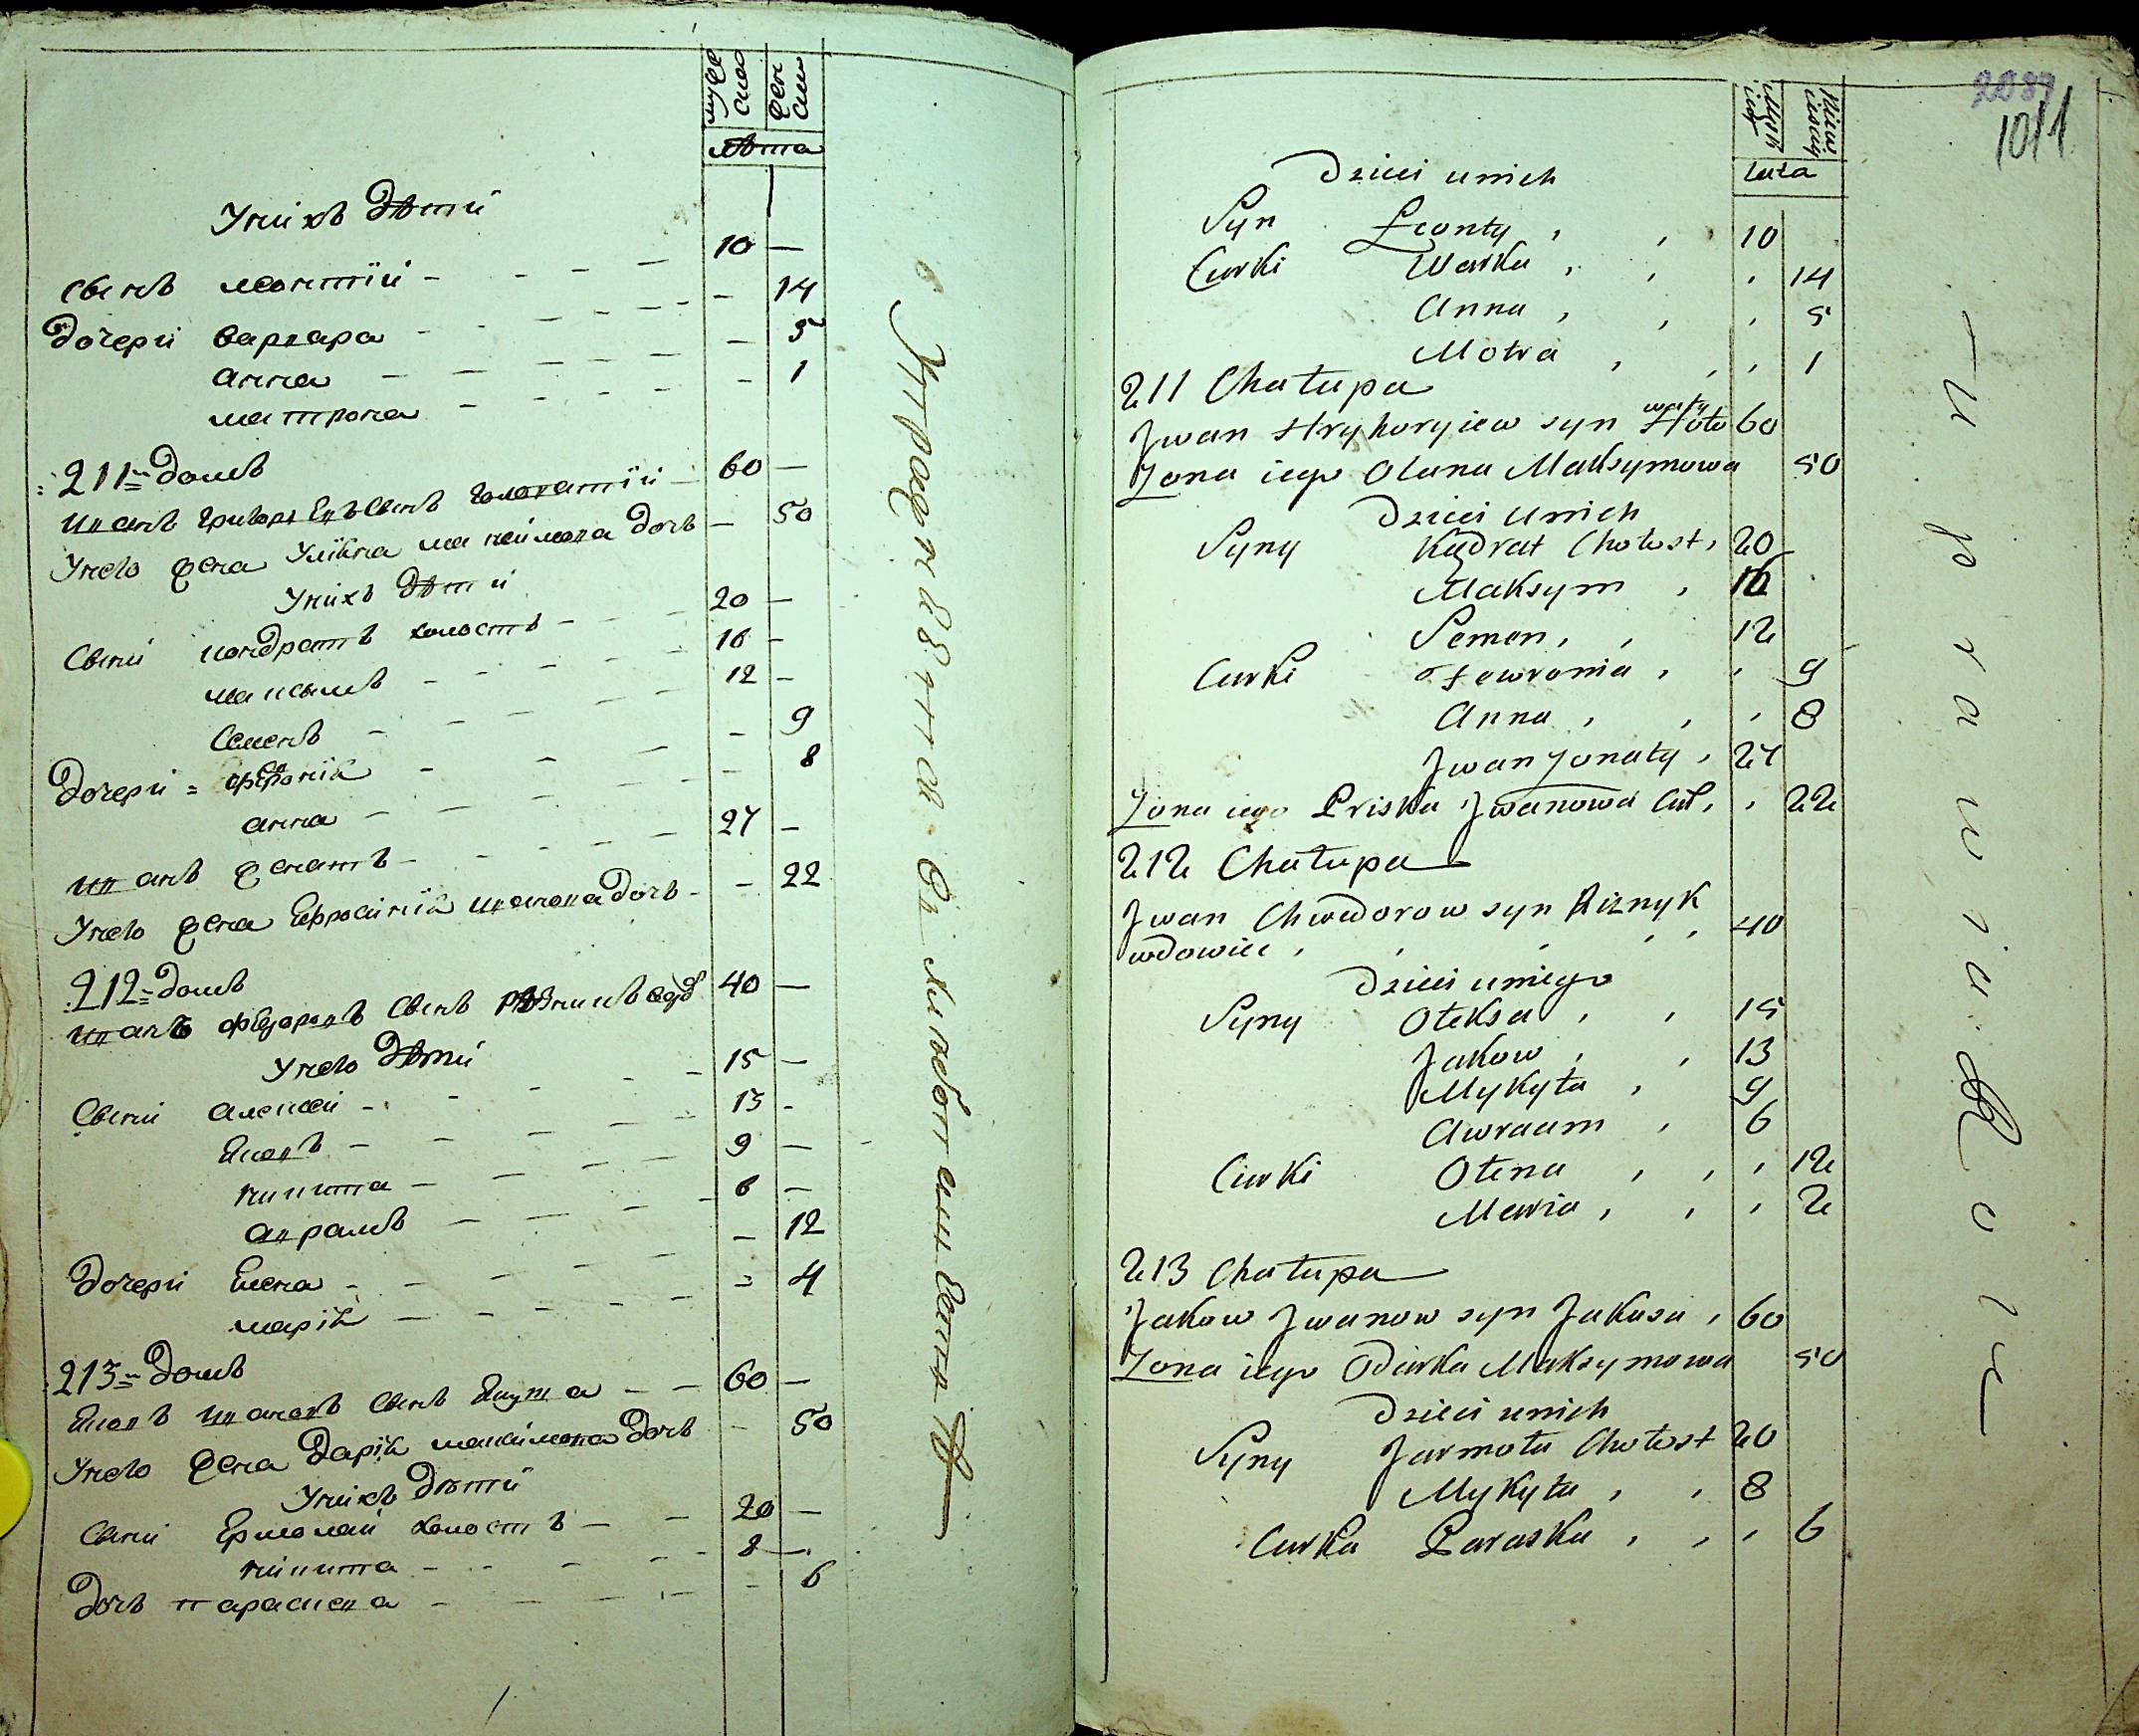 мужеска женска
лѣта
У нихъ дѣти
сынъ леонтiй 10 —
дочери варвара — 14
анна — 5
матрона — 1
211 домъ
иванъ григорьевъ сынъ головатiй 60 —
У него жена Улiяна маѯимова дочь — 50
У нихъ дѣти
сыни кондратъ холостъ 20 —
максымъ 16 —
Семенъ 12 —
дочери Ефронiя — 9
анна — 8
иванъ женатъ 27 —
У него жена Ефросинiя иванова дочь — 22
212 домъ
иванъ федоровъ сынъ рѣзникъ вдовъ 40 —
У него дѣти
сыни алексей 15 —
Яковъ 13 —
никита 9 —
аврамъ 6 —
дочери Елена — 12
марiя — 4
213 домъ
Яковъ ивановъ сынъ Якуша 60 —
У него жена дарiя максимова дочь — 50
У нихъ дѣти
сыни Ермолай холостъ 20 —
никита 8 —
дочь параскева — 6
2089
1011
lata
Dzieci u nich
Syn Leonty 10
Curki Warka 14
Anna 5
Motra 1
211 Chałupa
Jwan Hryhoryiew syn Hoło 60
waty
Zona iego Olana Maksymowa 50
Dzieci u nich
Syny Kądrat Chołost 20
Maksym 16
Semen 12
Curki Fewronia 9
Anna 8
Jwan zonaty 27
Zona iego Priska Jwanowa Cur. 22
212 Chałupa
Jwan Chwedorow syn Riznyk
wdowiec 40
Dzieci u niego
Syny Ołeksa 15
Jakow 13
Mykyta 9
Awraam 6
Curki Ołena 12
Maria 2
213 Chałupa
Jakow Jwanow syn Jakusa 60
Zona iego Odarka Maksymowa 50
Dzieci u nich
Syny Jarmoła Chołost 20
Mykyta 8
Curka Paraska 6